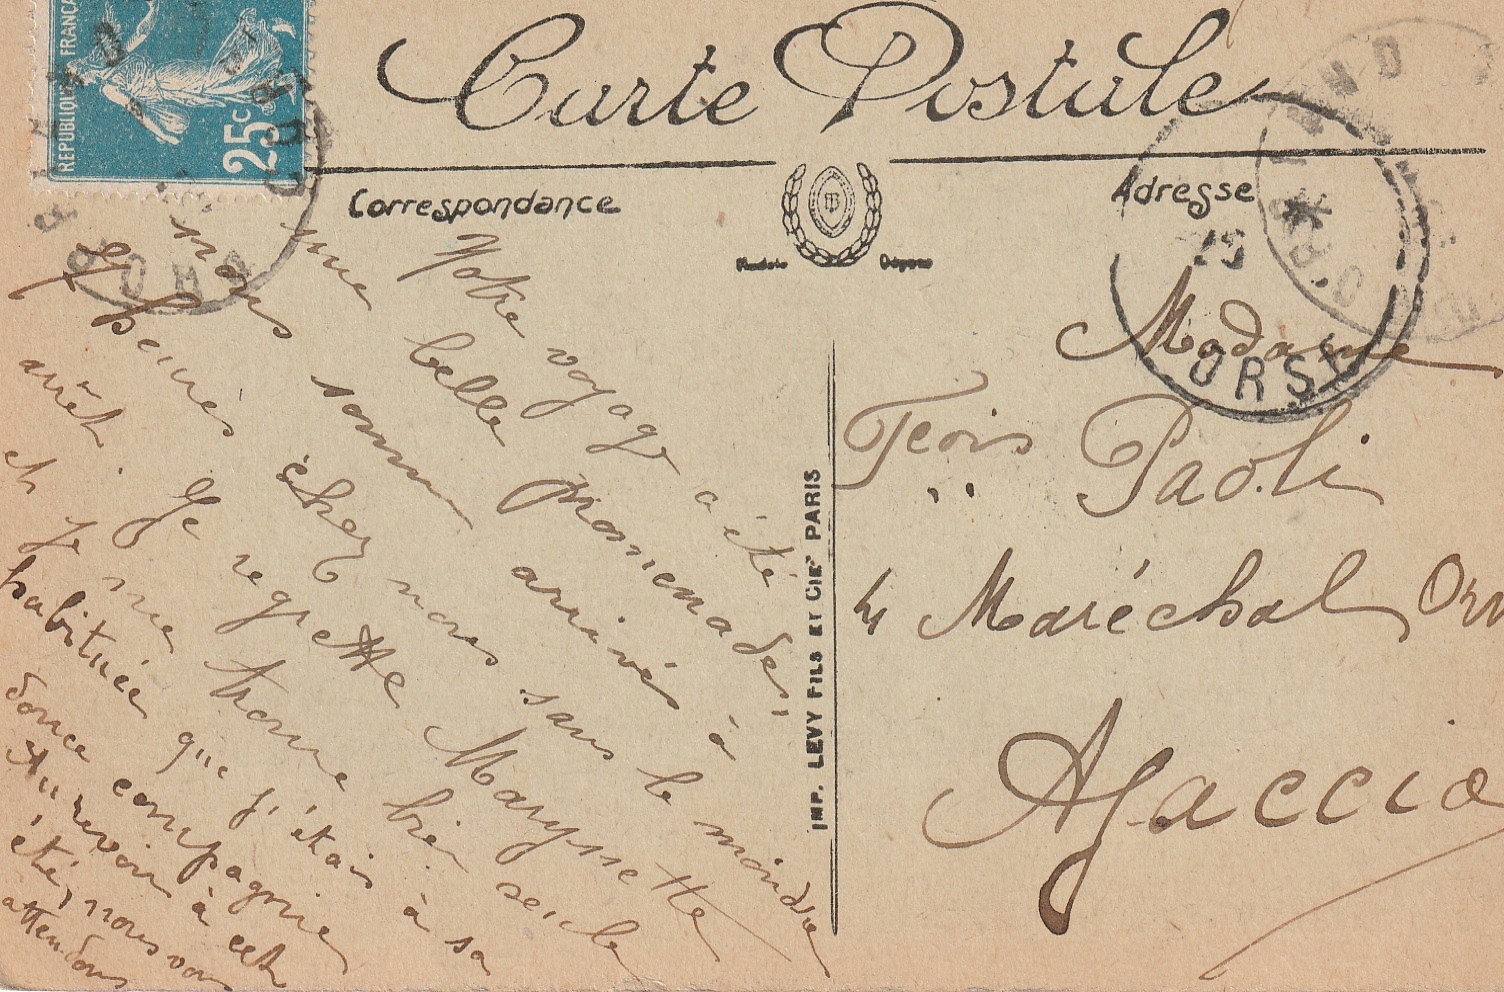 REPUBLIQUE FRANÇAISE
25c
Carte Postale
Correspondance
Adresse
Modèle Déposé
IMP. LEVY FILS ET CIE PARIS
ORSE
Notre voyage a été
une belle promenade,
nous sommes arrivés à
heures chez nous sans le moindre
arrêt. Je regrette Marynette
et je me trouve bien seule
habituée que j'étais à sa
douce compagnie
Au revoir à cet
été, nous vous
attendons
Madame
Paoli
Maréchal Orn
Ajaccio